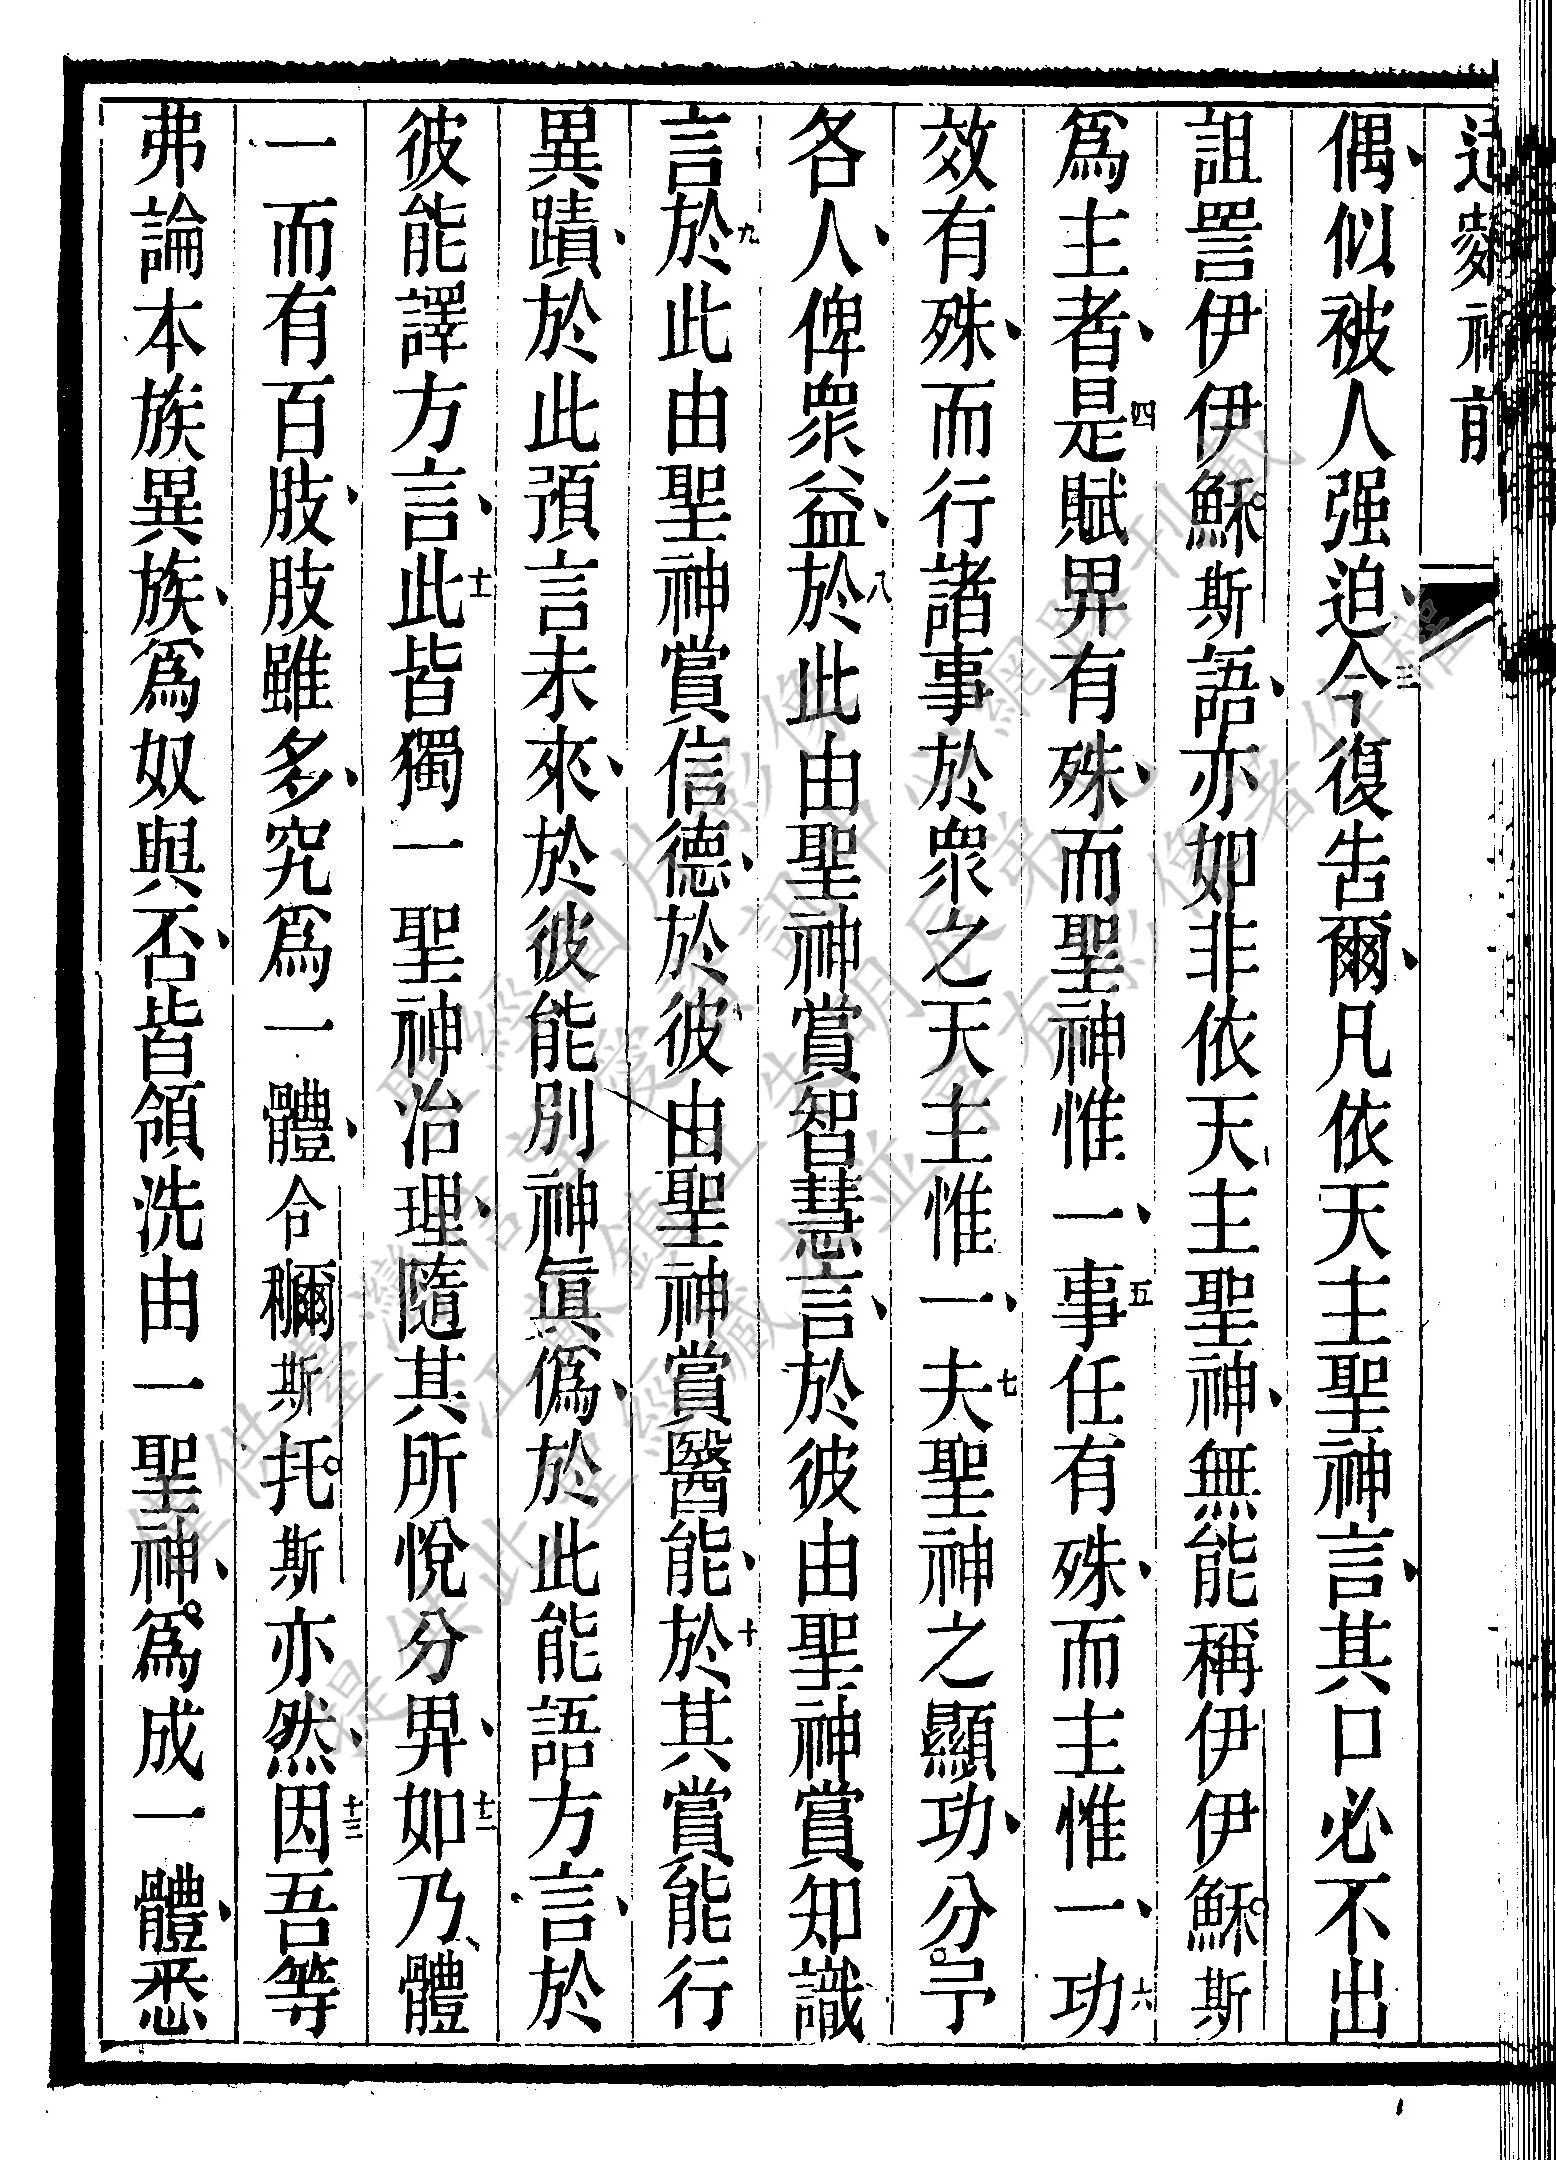 偶、似被人强迫、三今復吿爾、凡依天主聖神言、其口必不出
詛詈伊伊穌斯語、亦如非依天主聖神、無能稱伊伊穌斯
爲主者、四是賦畀有殊、而聖神惟一、五事任有殊、而主惟一、六功
效有殊、而行諸事於眾之天主惟一、七夫聖神之顯功、分予
各人、俾眾益、八於此由聖神賞智慧言、於彼由聖神賞知識
言九於此由聖神賞信德、於彼由聖神賞醫能、十於其賞能行
異蹟、於此預言未來、於彼能別神眞僞、於此能語方言、於
彼能譯方言、十一此皆獨一聖神治理、隨其所悅分畀、十二如乃體
一而有百肢、肢雖多、究爲一體、合穪斯托斯亦然、十三因吾等
弗論本族異族、爲奴與否、皆領洗由一聖神、爲成一體、悉